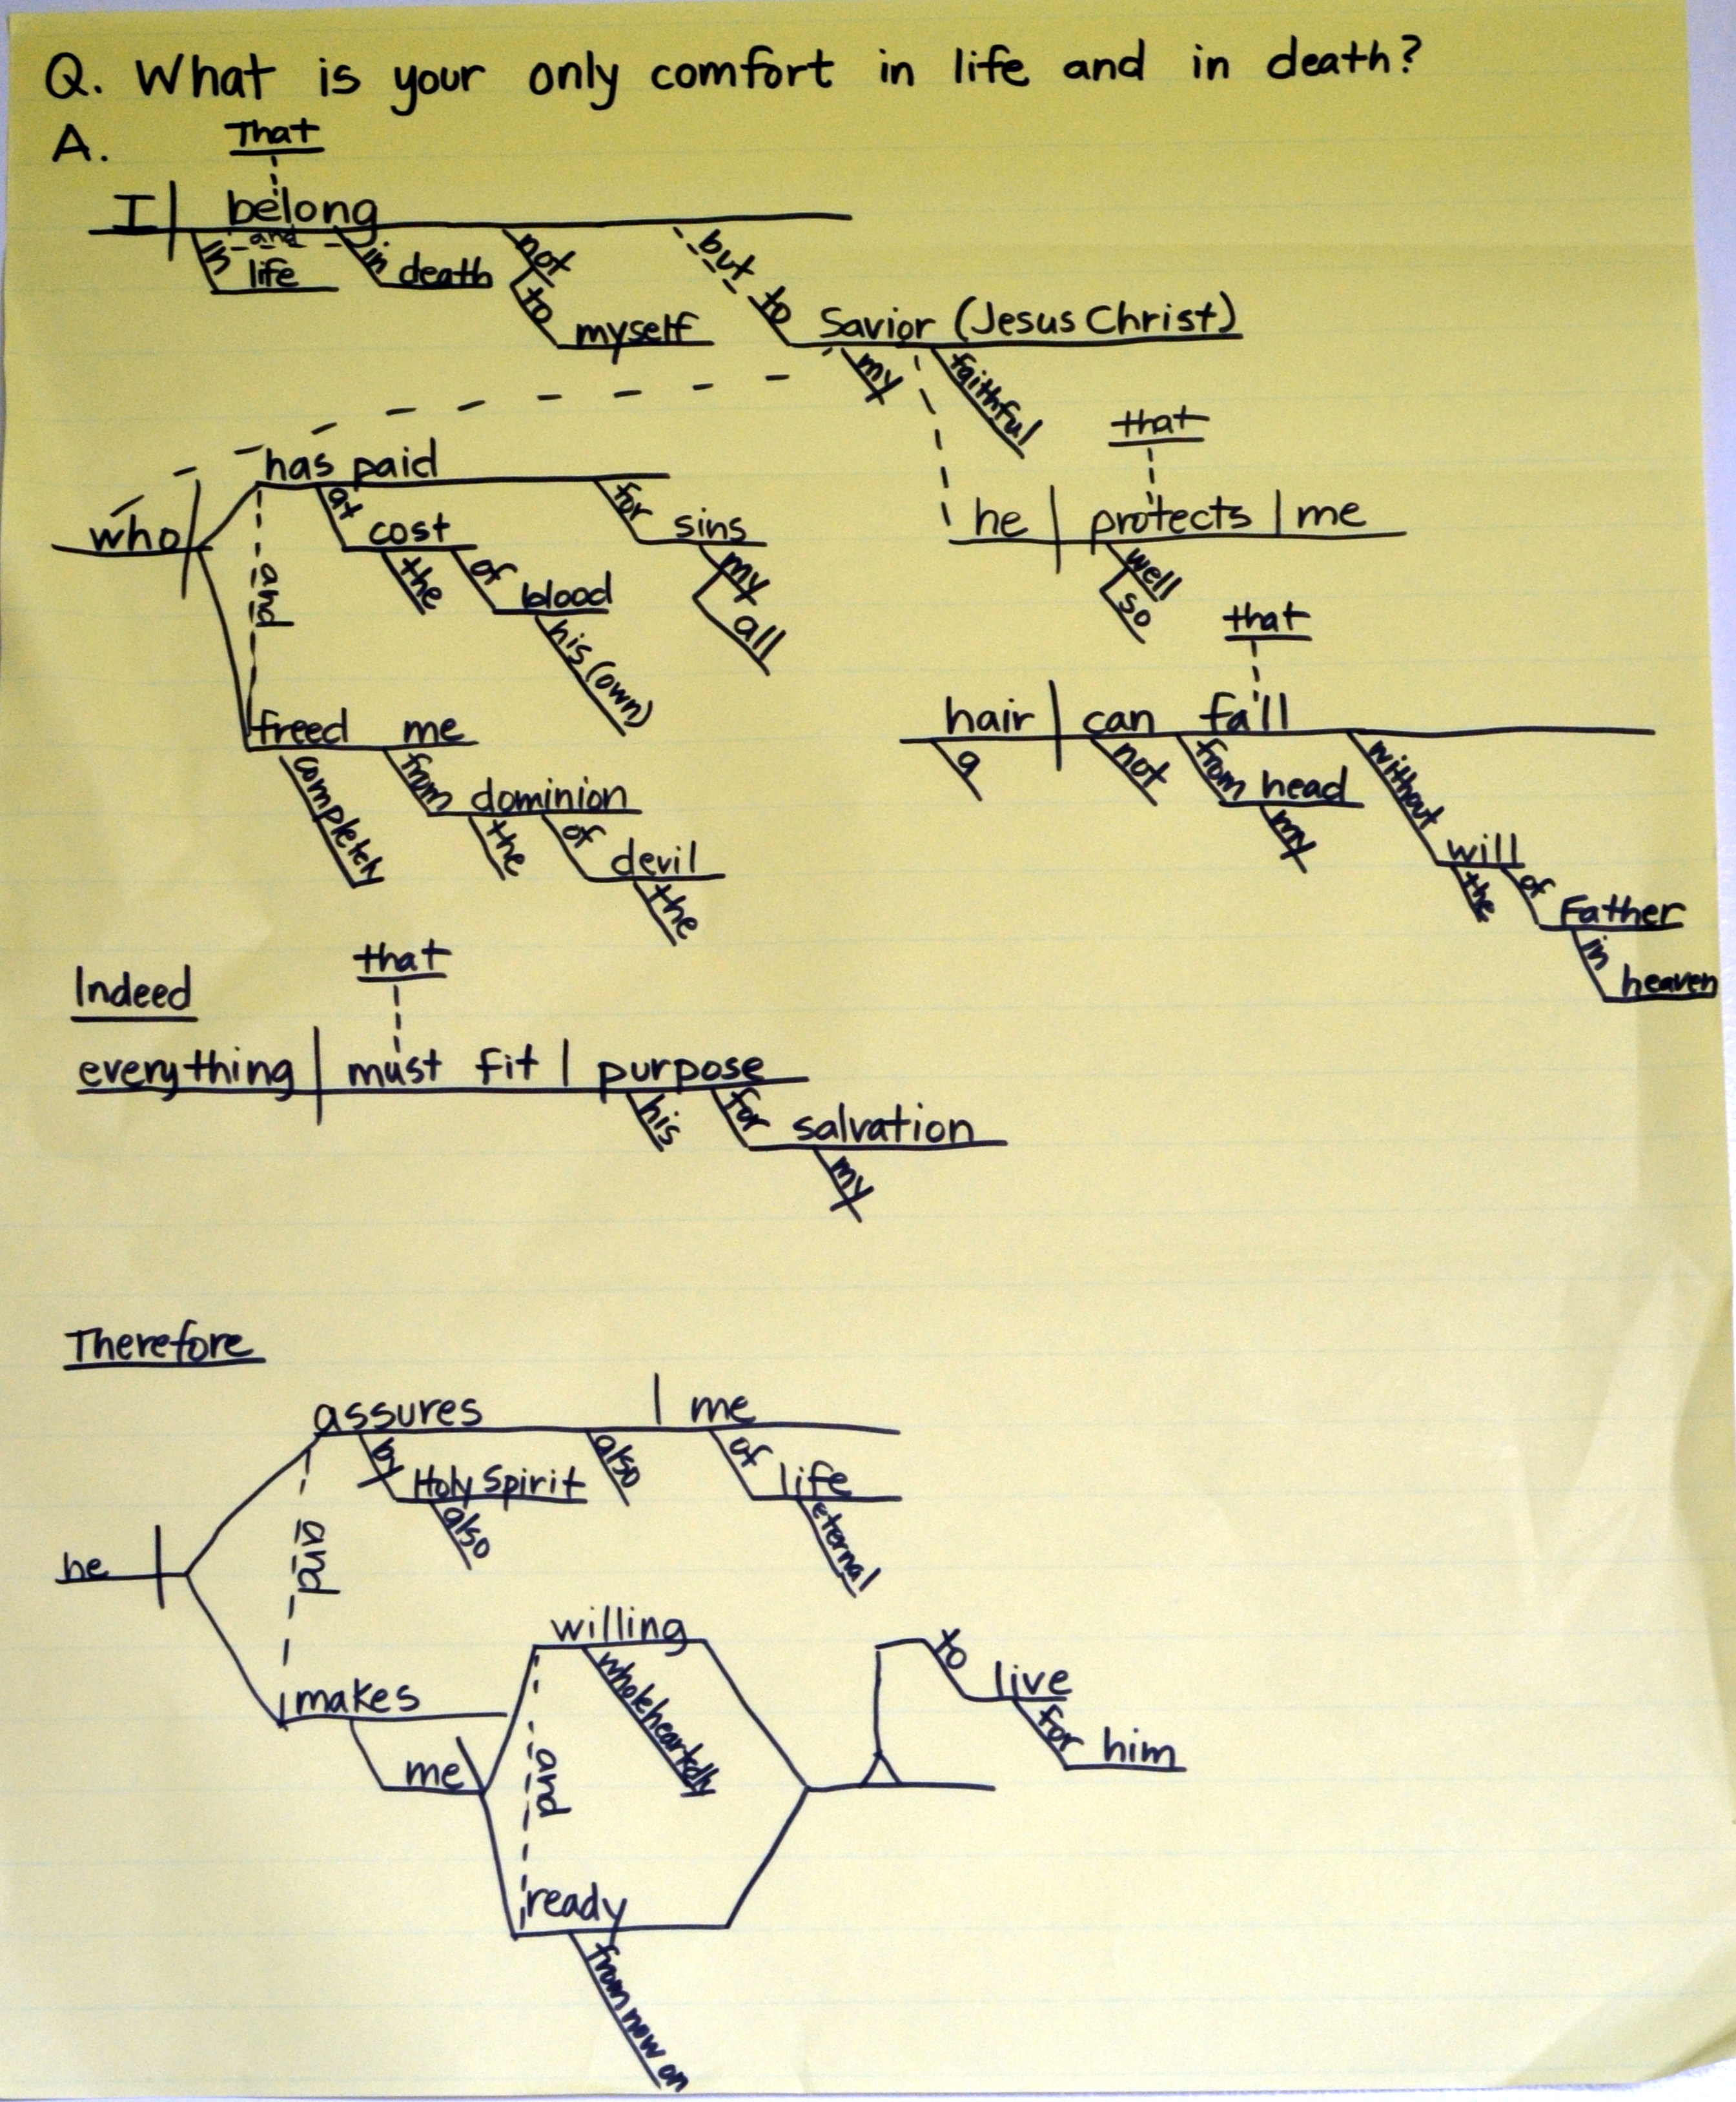 Q. What is your only comfort in life and in death?
A.
That
I belong
and
in life
in death
not
to myself
but to Savior (Jesus Christ)
my
faithful
who
has paid
at cost
the
of blood
his (own)
for sins
my
all
and
freed me
completely
from dominion
the
of devil
the
that
he protects me
well
so
that
hair can fall
a
not
from head
my
without will
the
of Father
in heaven
Indeed
that
everything must fit purpose
his
for salvation
my
Therefore
he
assures me
by Holy Spirit
also
also
of life
eternal
and
makes
me
willing
wholeheartedly
and
ready
from now on
to live
for him